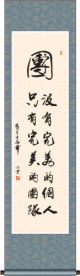 團
沒有完美的個人
只有完美的團隊